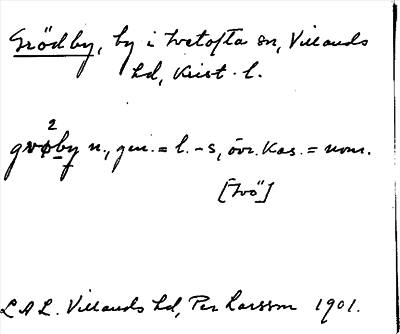 Grödby, by i Ivetofta sn, Villands
hd, Krist. l.
grø²by n., gen. = l. -s, övr. kas. = nom.
[tvö]
L A L. Villands hd, Per Larsson 1901.